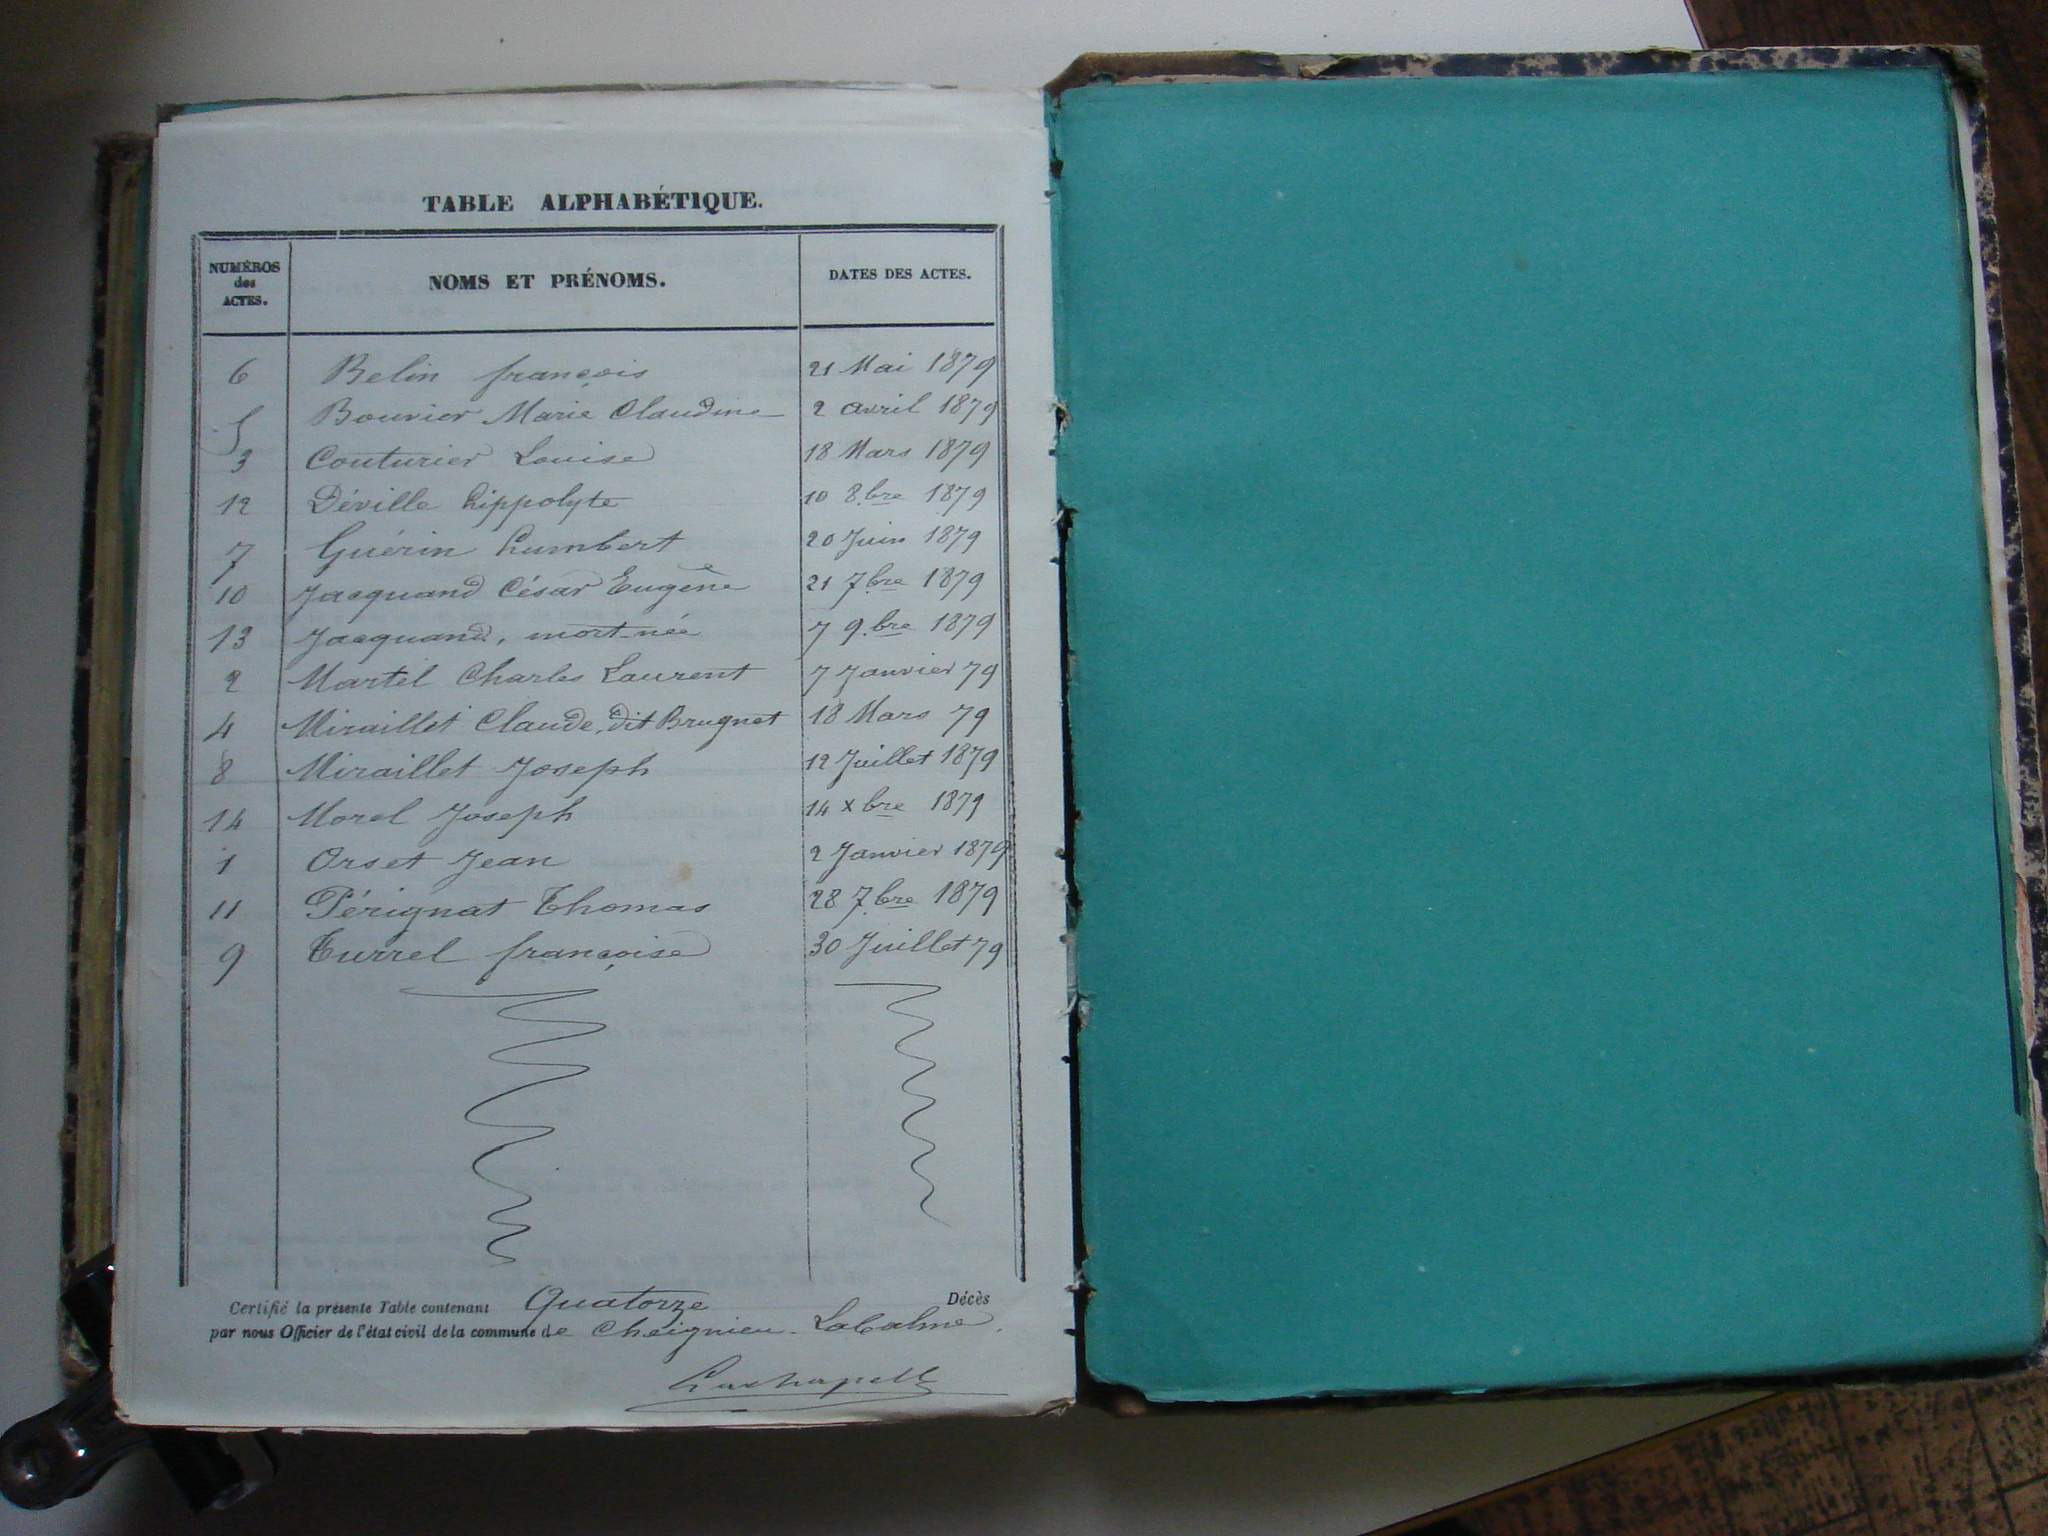 TABLE ALPHABÉTIQUE.
NUMÉROS des ACTES. NOMS ET PRÉNOMS. DATES DES ACTES.
6 Belin françois 21 Mai 1879
5 Bouvier Marie Claudine 2 avril 1879
3 Couturier Louise 18 Mars 1879
12 Déville hippolyte 10 8.bre 1879
7 Guérin humbert 20 Juin 1879
10 Jacquand César Eugène 21 7.bre 1879
13 Jacquand, mort-née 7 9.bre 1879
2 Martel Charles Laurent 7 Janvier 79
4 Miraillet Claude, dit Brugnet 18 Mars 79
8 Miraillet Joseph 12 Juillet 1879
14 Morel Joseph 14 xbre 1879
1 Orset Jean 2 Janvier 1879
11 Pérignat Thomas 28 7.bre 1879
9 Turrel françoise 30 Juillet 79
Certifié la présente Table contenant Quatorze Décès
par nous Officier de l'état civil de la commune de Cheignieu-Labalme.